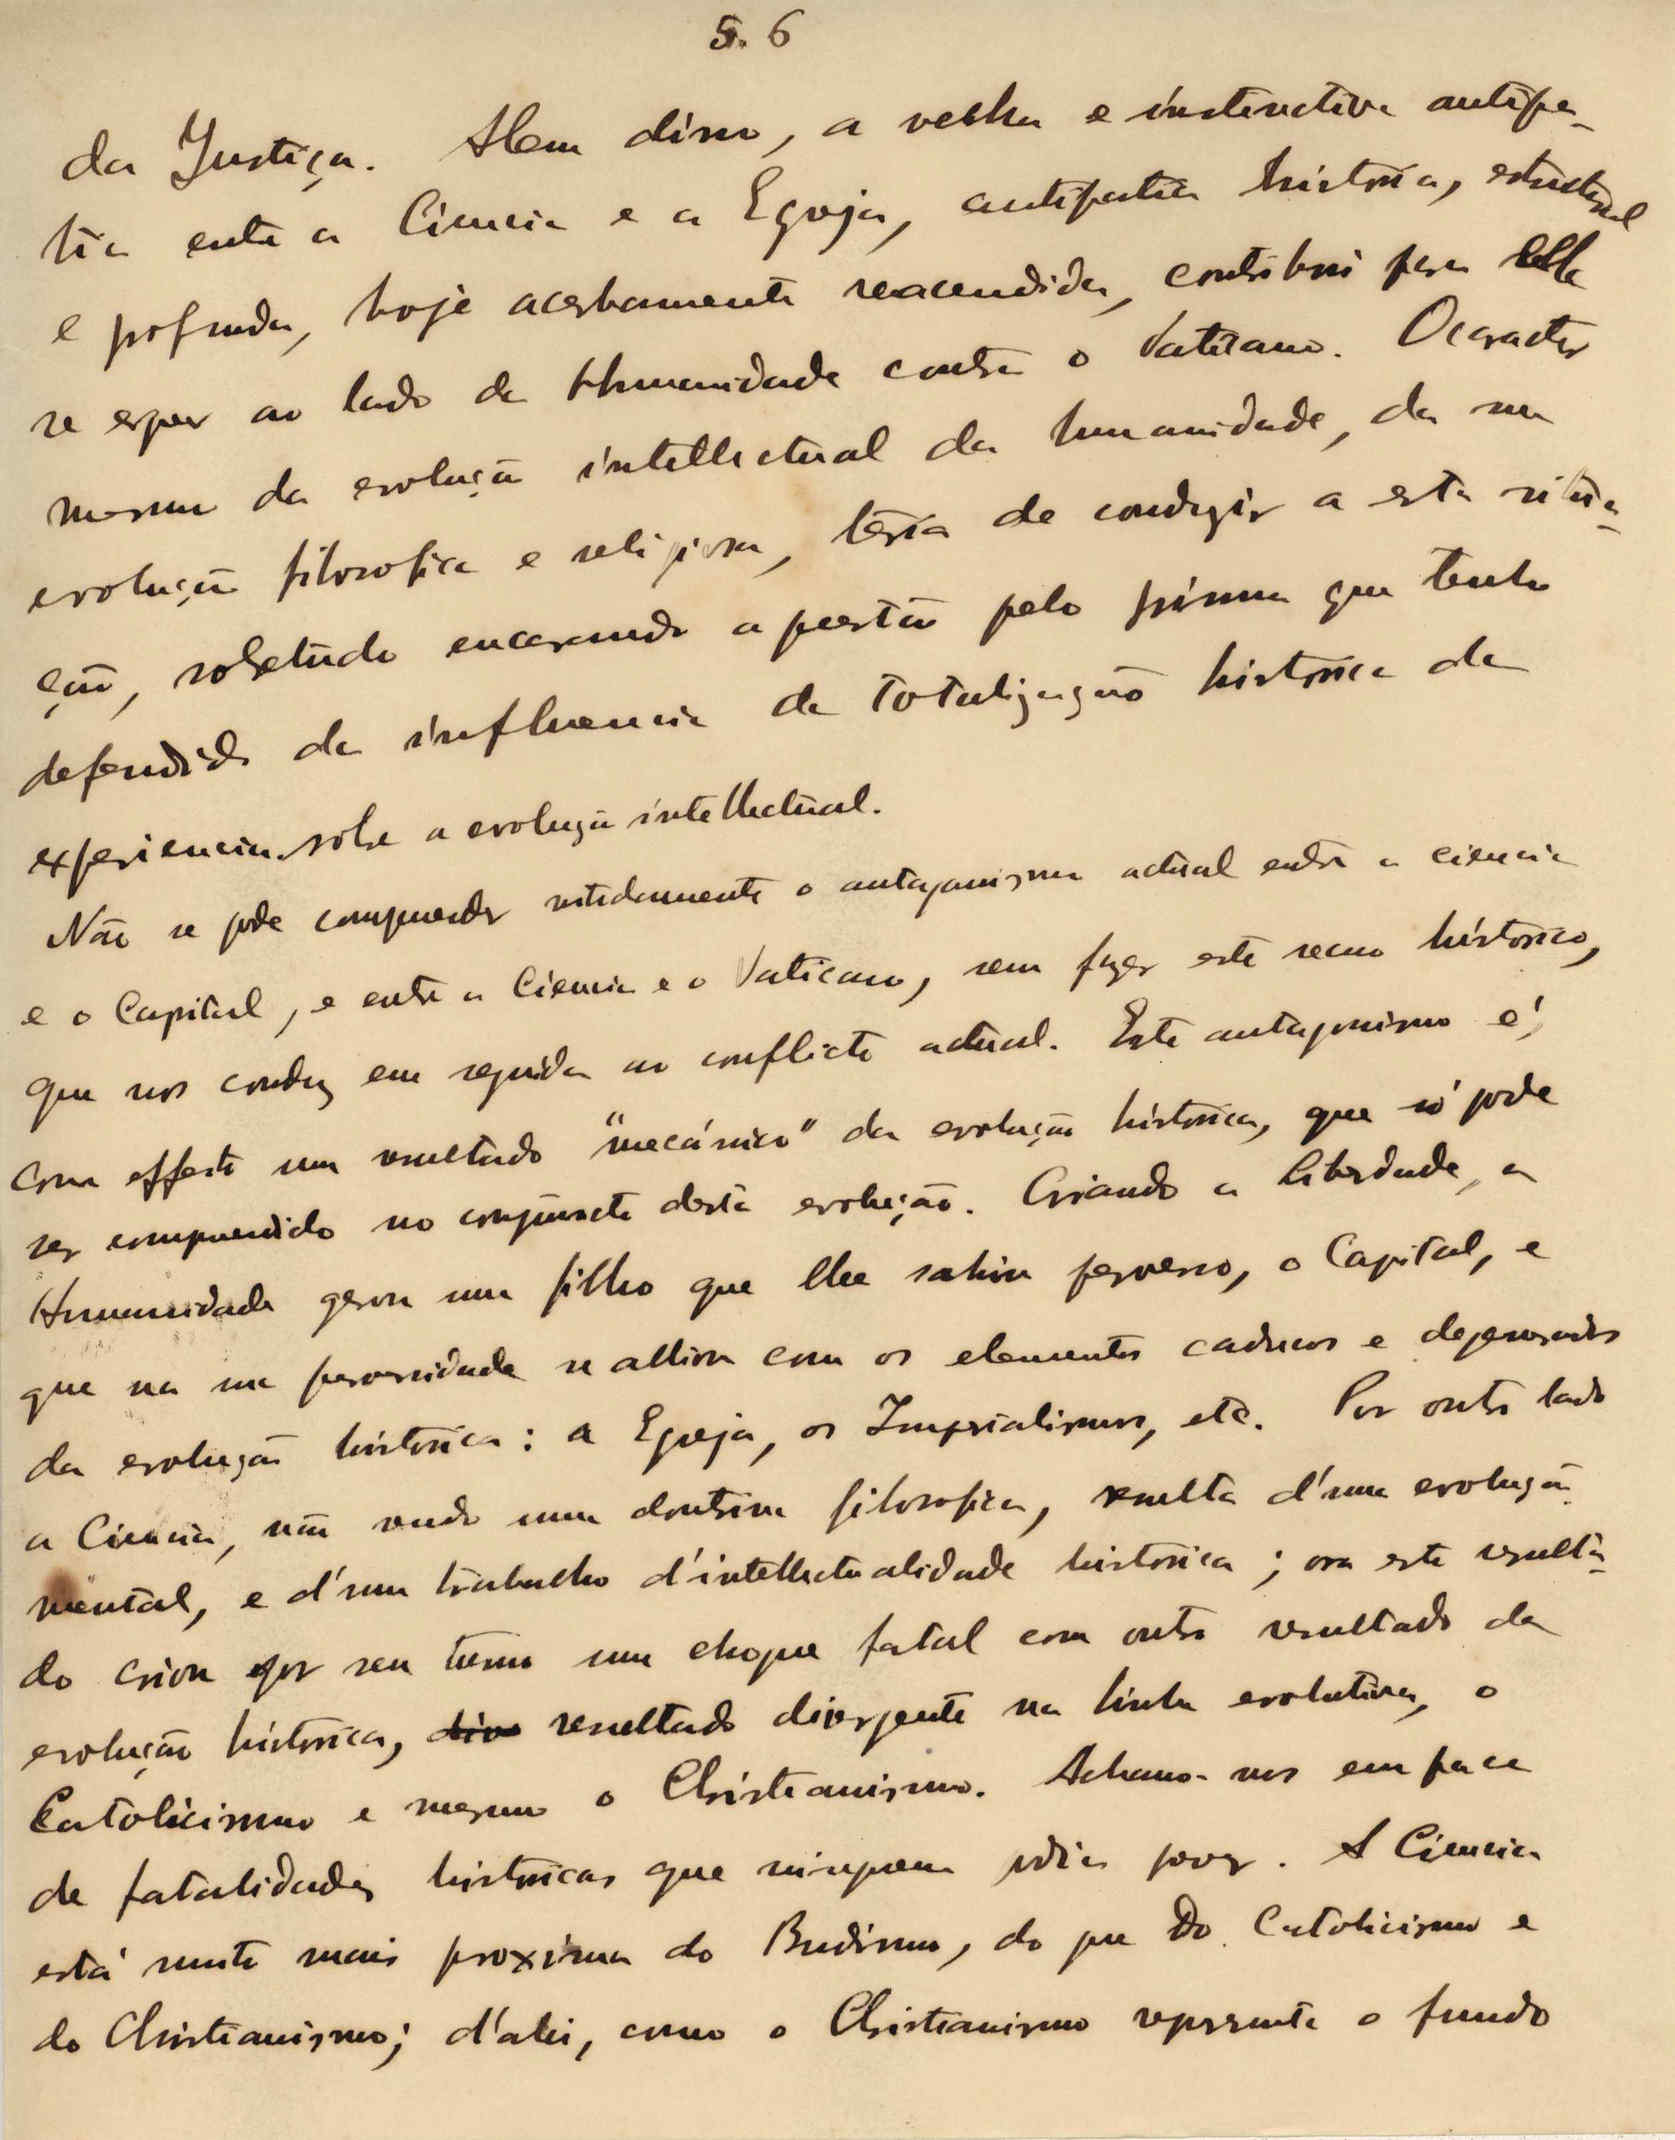 5. 6
da Justiça. Alem disso, a velha e instinctiva antipa-
tia entre a Ciencia e a Egreja, antipatia historica, estructural
e profunda, hoje acerbamente reacendida, contribui para ella
se erguer ao lado da Humanidade contra o Vaticano. O caracter
mesmo da evolução intellectual da humanidade, da sua
evolução filosofica e religiosa, teria de conduzir a esta situa-
ção, sobretudo encarando a questão pelo prisma que tenho
defendido da influencia da totalização historica da
experiencia sobre a evolução intellectual.
Não se pode comprender nitidamente o antagonismo actual entre a ciencia
e o Capital, e entre a Ciencia e o Vaticano, sem fazer este recuo histórico,
que nos conduz em seguida ao conflicto actual. Este antagonismo é,
com effeito um resultado "mecánico" da evolução histórica, que só pode
ser comprendido no conjuncto desta evolução. Criando a liberdade, a
Humanidade gerou um filho que lhe sahiu perverso, o Capital, e
que na sua perversidade se alliou com os elementos caducos e degenerados
da evolução histórica: a Egreja, os Imperialismos, etc. Por outro lado
a Ciencia, não sendo uma doutrina filosofica, resulta d'uma evolução
mental, e d'um trabalho d'intellectualidade historica; ora este resulta-
do criou por seu turno um choque fatal com outro resultado da
evolução histórica, div resultado divergente na linha evolutiva, o
Catolicismo e mesmo o Christianismo. Achamo-nos em face
de fatalidades historicas que ninguem podia prever. A Ciencia
está muito mais proxima do Budismo, do que do Catolicismo e
do Christianismo; d'ahi, como o Christianismo representa o fundo